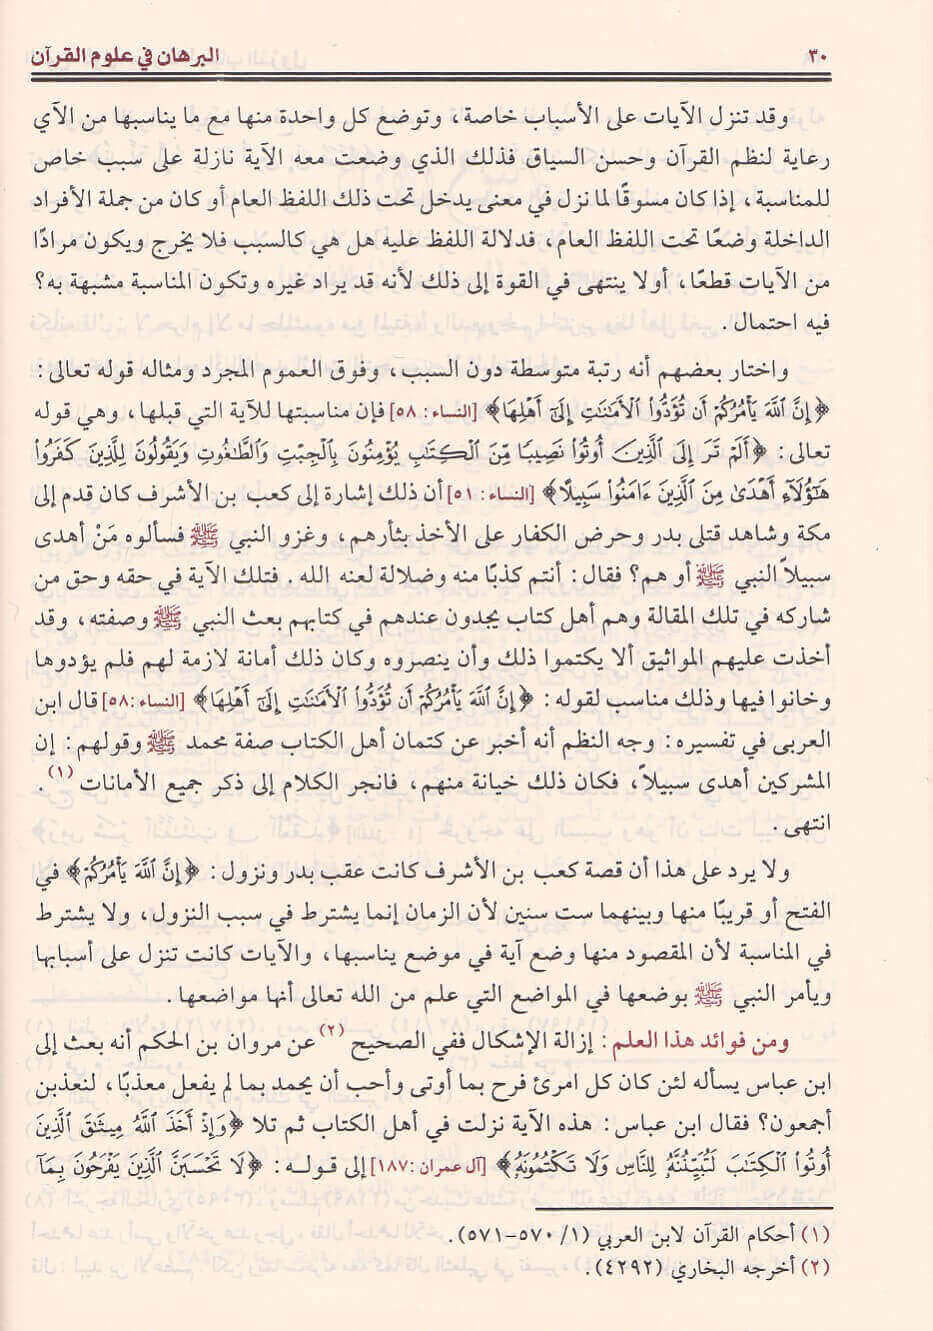 ٣٠ البرهان في علوم القرآن
وقد تنزل الآيات على الأسباب خاصة، وتوضع كل واحدة منها مع ما يناسبها من الآي
رعاية لنظم القرآن وحسن السياق فذلك الذي وضعت معه الآية نازلة على سبب خاص
للمناسبة، إذا كان مسوقًا لما نزل في معنى يدخل تحت ذلك اللفظ العام أو كان من جملة الأفراد
الداخلة وضعًا تحت اللفظ العام، فدلالة اللفظ عليه هل هي كالسبب فلا يخرج ويكون مرادًا
من الآيات قطعًا، أو لا ينتهى في القوة إلى ذلك لأنه قد يراد غيره وتكون المناسبة مشبهة به؟
فيه احتمال.
واختار بعضهم أنه رتبة متوسطة دون السبب، وفوق العموم المجرد ومثاله قوله تعالى:
﴿إِنَّ اللَّهَ يَأْمُرُكُمْ أَن تُؤَدُّوا۟ الْأَمَٰنَٰتِ إِلَىٰٓ أَهْلِهَا﴾ [النساء: ٥٨] فإن مناسبتها للآية التي قبلها، وهي قوله
تعالى: ﴿أَلَمْ تَرَ إِلَى الَّذِينَ أُوتُوا۟ نَصِيبًا مِّنَ الْكِتَٰبِ يُؤْمِنُونَ بِالْجِبْتِ وَالطَّٰغُوتِ وَيَقُولُونَ لِلَّذِينَ كَفَرُوا۟
هَٰٓؤُلَآءِ أَهْدَىٰ مِنَ الَّذِينَ ءَامَنُوا۟ سَبِيلًا﴾ [النساء: ٥١] أن ذلك إشارة إلى كعب بن الأشرف كان قدم إلى
مكة وشاهد قتلى بدر وحرض الكفار على الأخذ بثأرهم، وغزو النبي ﷺ فسألوه مَنْ أهدى
سبيلاً النبي ﷺ أو هم؟ فقال: أنتم كذبًا منه وضلالة لعنه الله. فتلك الآية في حقه وحق من
شاركه في تلك المقالة وهم أهل كتاب يجدون عندهم في كتابهم بعث النبي ﷺ وصفته، وقد
أخذت عليهم المواثيق ألا يكتموا ذلك وأن ينصروه وكان ذلك أمانة لازمة لهم فلم يؤدوها
وخانوا فيها وذلك مناسب لقوله: ﴿إِنَّ اللَّهَ يَأْمُرُكُمْ أَن تُؤَدُّوا۟ الْأَمَٰنَٰتِ إِلَىٰٓ أَهْلِهَا﴾ [النساء:٥٨] قال ابن
العربى في تفسيره: وجه النظم أنه أخبر عن كتمان أهل الكتاب صفة محمد ﷺ وقولهم: إن
المشركين أهدى سبيلاً، فكان ذلك خيانة منهم، فانجر الكلام إلى ذكر جميع الأمانات (١).
انتهى.
ولا يرد على هذا أن قصة كعب بن الأشرف كانت عقب بدر ونزول: ﴿إِنَّ اللَّهَ يَأْمُرُكُمْ﴾ في
الفتح أو قريبًا منها وبينهما ست سنين لأن الزمان إنما يشترط في سبب النزول، ولا يشترط
في المناسبة لأن المقصود منها وضع آية في موضع يناسبها، والآيات كانت تنزل على أسبابها
ويأمر النبي ﷺ بوضعها في المواضع التي علم من الله تعالى أنها مواضعها.
ومن فوائد هذا العلم: إزالة الإشكال ففي الصحيح (٢) عن مروان بن الحكم أنه بعث إلى
ابن عباس يسأله لئن كان كل امرئ فرح بما أوتى وأحب أن يحمد بما لم يفعل معذبًا، لنعذبن
أجمعون؟ فقال ابن عباس: هذه الآية نزلت في أهل الكتاب ثم تلا ﴿وَإِذْ أَخَذَ اللَّهُ مِيثَٰقَ الَّذِينَ
أُوتُوا۟ الْكِتَٰبَ لَتُبَيِّنُنَّهُۥ لِلنَّاسِ وَلَا تَكْتُمُونَهُۥ﴾ [آل عمران: ١٨٧] إلى قوله: ﴿لَا تَحْسَبَنَّ الَّذِينَ يَفْرَحُونَ بِمَآ
(١) أحكام القرآن لابن العربي (١/ ٥٧٠-٥٧١).
(٢) أخرجه البخاري (٤٢٩٢).